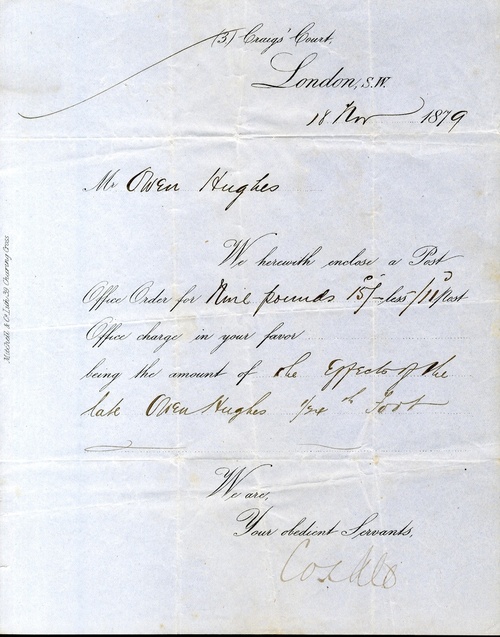 (3) Craigs' Court,
London, S.W.
18 Nov 1879
Mr Owen Hughes
We herewith enclose a Post
Office Order for Nine pounds 15/- less /11d Post
Office charge in your favor
being the amount of the Effects of the
late Owen Hughes 1/24th Foot
We are,
Your obedient Servants,
Cox & Co
Charing Cross